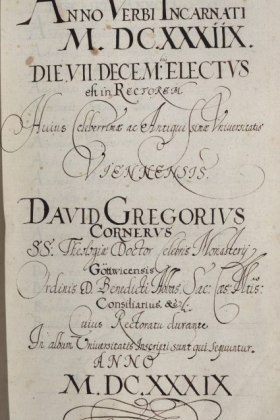 ANNO VERBI INCARNATI
M. DC.XXXIIX.
DIE VII. DECEM: ELECTVS
est in RECTOREM
Huius Celeberrimæ ac Antiquissimæ Vniversitatis
VIENNENSIS.
DAVID GREGORIUS
CORNERVS
SS: Theologiæ Doctor celebris Monasterij
Göttwicensis
Ordinis D. Benedicti Abbas, Sac: Cæs: Mtis:
Consiliarius. &c
cuius Rectoratu durante
In album Vniversitatis Inscripti sunt qui sequuntur.
ANNO
M. DC.XXXIX